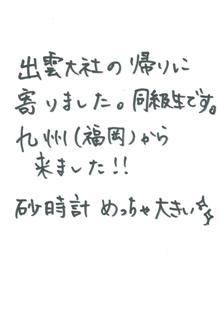 出雲大社の帰りに
寄りました。同級生です。
九州(福岡)から
来ました!!
砂時計 めっちゃ大きい☆